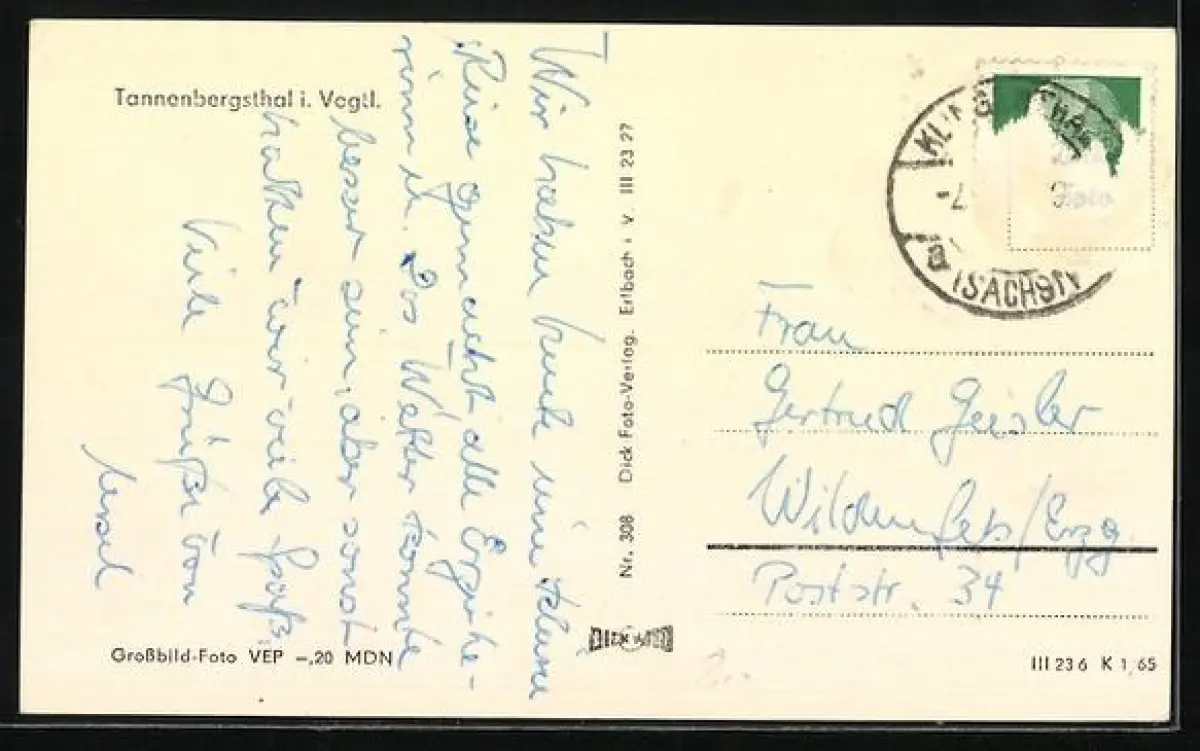 Tannenbergsthal i. Vogtl.
Wir haben heute eine kleine
Reise gemacht alle Erziehe-
rinnen. Das Wetter könnte
besser sein, aber sonst
hatten wir viel Spaß.
Viele Grüße von
Ursel
Großbild-Foto VEP -,20 MDN
Nr. 308 Dick Foto-Verlag. Erlbach i. V. III 23 27
DICK
KLINGENTHAL
(SACHS)
a
Foto
Frau
Gertrud Geisler
Wildenfels/Erzg.
Poststr. 34
III 23 6 K 1,65